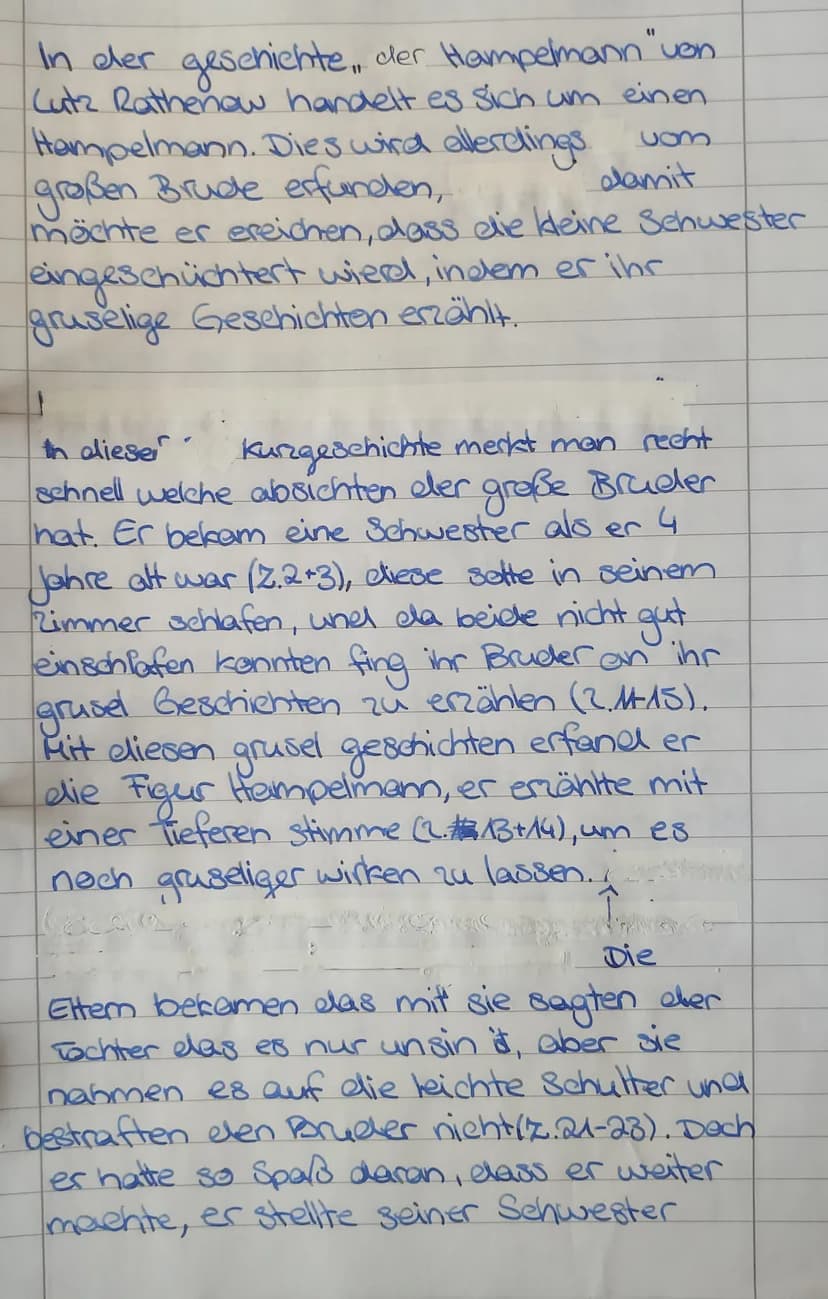 In der geschichte „der Hampelmann" von
Lutz Rathenow handelt es sich um einen
Hampelmann. Dies wird allerdings vom
großen Brude erfunden, damit
möchte er ereichen, dass die kleine Schwester
eingeschüchtert wierd, indem er ihr
gruselige Geschichten erzählt.
In dieser Kurzgeschichte merkt man recht
schnell welche absichten der große Bruder
hat. Er bekam eine Schwester als er 4
Jahre alt war (Z.2+3), diese sollte in seinem
Zimmer schlafen, und da beide nicht gut
einschlafen konnten fing ihr Bruder an ihr
grusel Geschichten zu erzählen (Z.11-15).
Mit diesen grusel geschichten erfand er
die Figur Hampelmann, er erzählte mit
einer Tieferen stimme (Z. 13+14), um es
noch gruseliger wirken zu lassen.
Die
Eltern bekamen das mit sie sagten der
Tochter das es nur unsin ist, aber sie
nahmen es auf die leichte Schulter und
bestraften den Bruder nicht (Z.21-23). Doch
er hatte so Spaß daran, dass er weiter
machte, er stellte seiner Schwester